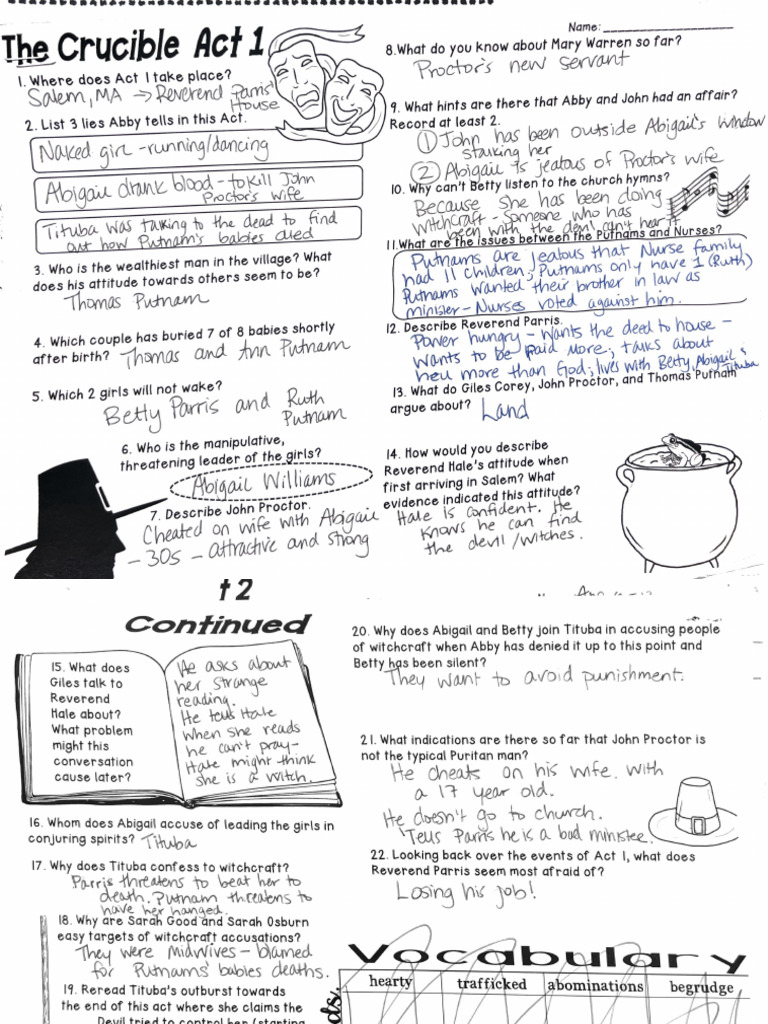 Name:
The Crucible Act 1
1. Where does Act 1 take place?
Salem, MA → Reverend Parris'
House
2. List 3 lies Abby tells in this Act.
Naked girl - running/dancing
Abigail drank blood - to kill John
Proctor's wife
Tituba was talking to the dead to find
out how Putnam's babies died
3. Who is the wealthiest man in the village? What
does his attitude towards others seem to be?
Thomas Putnam
4. Which couple has buried 7 of 8 babies shortly
after birth? Thomas and Ann Putnam
5. Which 2 girls will not wake?
Betty Parris and Ruth
Putnam
6. Who is the manipulative,
threatening leader of the girls?
Abigail Williams
7. Describe John Proctor.
Cheated on wife with Abigail
- 30s - attractive and strong
8.What do you know about Mary Warren so far?
Proctor's new servant
9. What hints are there that Abby and John had an affair?
Record at least 2.
① John has been outside Abigail's window
stalking her
② Abigail is jealous of Proctor's wife
10. Why can't Betty listen to the church hymns?
Because she has been doing
witchcraft - someone who has
been with the devil can't hear it
11.What are the issues between the Putnams and Nurses?
Putnams are jealous that Nurse family
had 11 children; Putnams only have 1 (Ruth)
Putnams wanted their brother in law as
minister - Nurses voted against him.
12. Describe Reverend Parris.
Power hungry - wants the deed to house -
wants to be paid more; talks about
hell more than God; lives with Betty, Abigail &
Tituba
13. What do Giles Corey, John Proctor, and Thomas Putnam
argue about? Land
14. How would you describe
Reverend Hale's attitude when
first arriving in Salem? What
evidence indicated this attitude?
Hale is confident. He
knows he can find
the devil/witches.
t 2
Continued
15. What does
Giles talk to
Reverend
Hale about?
What problem
might this
conversation
cause later?
He asks about
her strange
reading.
He tells Hale
when she reads
he can't pray-
Hale might think
she is a witch.
16. Whom does Abigail accuse of leading the girls in
conjuring spirits? Tituba
17. Why does Tituba confess to witchcraft?
Parris threatens to beat her to
death. Putnam threatens to
have her hanged.
18. Why are Sarah Good and Sarah Osburn
easy targets of witchcraft accusations?
They were midwives - blamed
for Putnams' babies deaths.
19. Reread Tituba's outburst towards
the end of this act where she claims the
Devil tried to control her (starting
20. Why does Abigail and Betty join Tituba in accusing people
of witchcraft when Abby has denied it up to this point and
Betty has been silent?
They want to avoid punishment.
21. What indications are there so far that John Proctor is
not the typical Puritan man?
He cheats on his wife. with
a 17 year old.
He doesn't go to church.
Tells Parris he is a bad minister.
22. Looking back over the events of Act 1, what does
Reverend Parris seem most afraid of?
Losing his job!
Vocabulary
hearty trafficked abominations begrudge